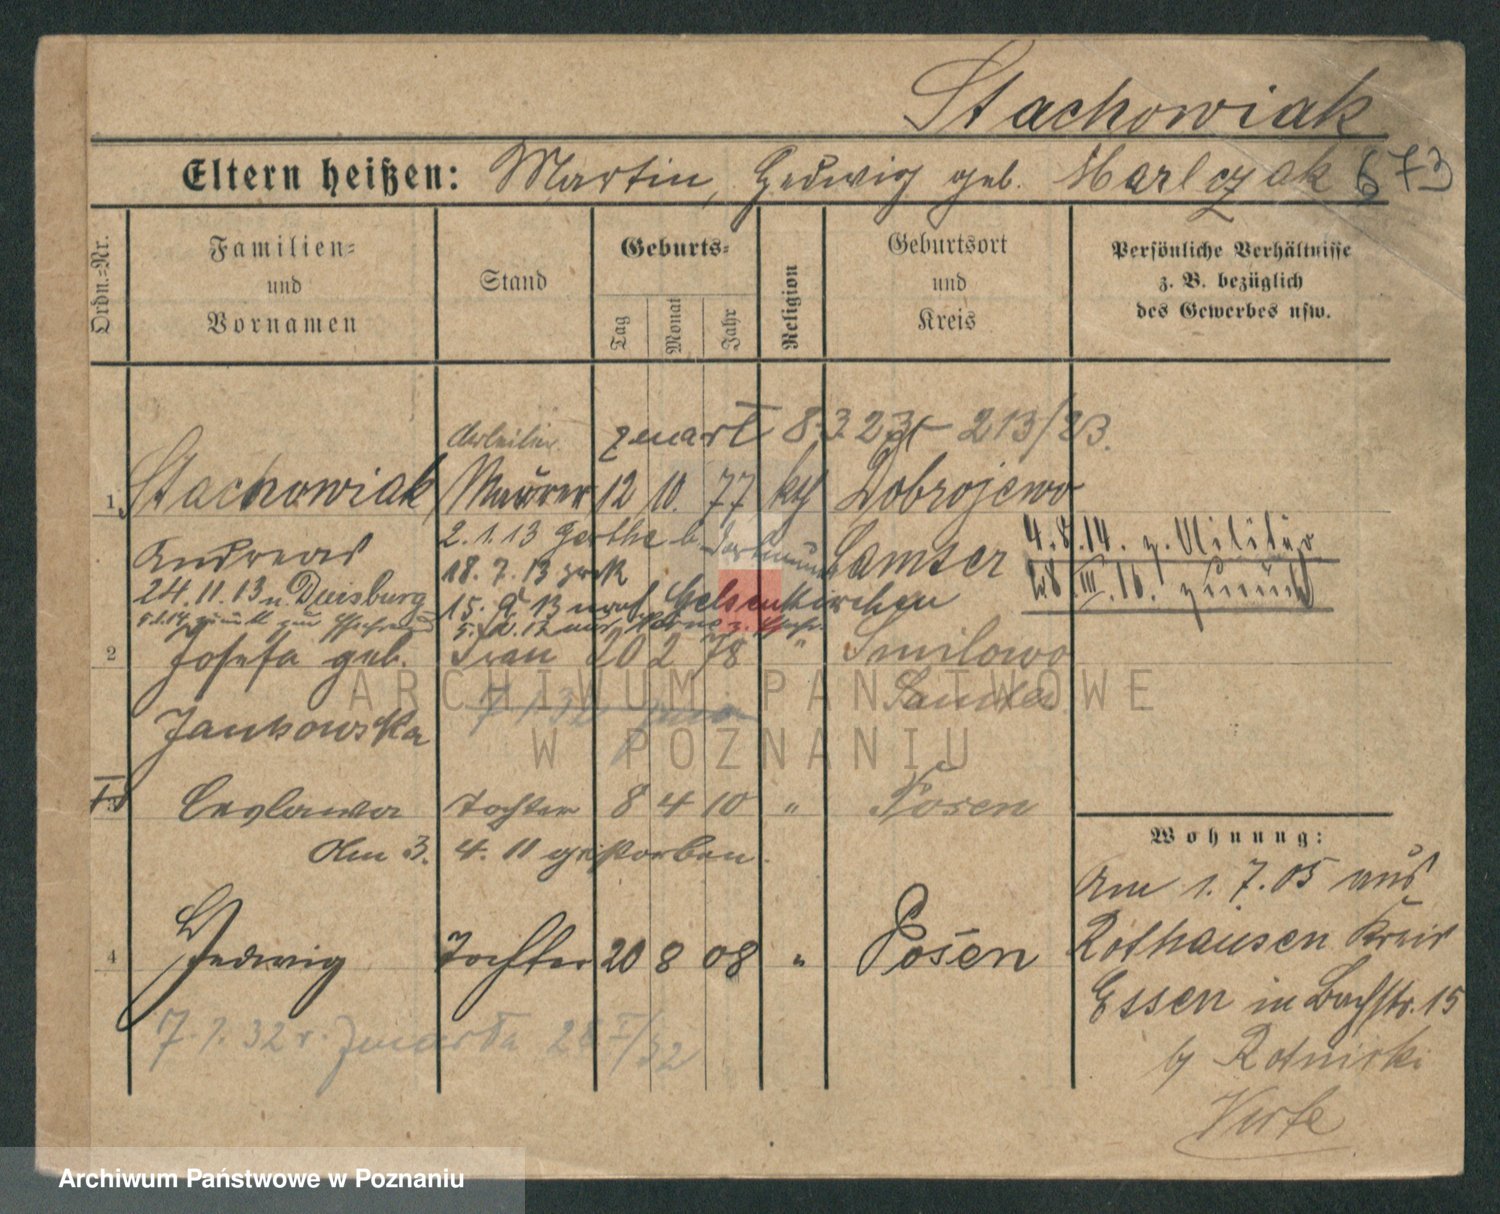 Stachowiak
Eltern heißen: Martin, Hedwig geb. Marlczak 673
Ordn.-Nr.
Familien-
und
Vornamen
Stand
Geburts-
Tag
Monat
Jahr
Religion
Geburtsort
und
Kreis
Persönliche Verhältnisse
z. B. bezüglich
des Gewerbes usw.
Arbeiter zmarł 8.3.23 213/23.
1 Stachowiak Maurer 12 10. 77 kth Dobrojewo
Andreas 2.1.13 Samter 4.8.14. z. Militär
24.11.13 n. Duisburg 18.7.13 zrck 28.III.16. zurück
15. 9. 13 nach Gelsenkirchen
2 Josefa geb. Frau 20 2 78 " Smilowo
Jankowska 7 1 32 Samter
3 Ceslawa Tochter 8 4 10 " Posen
Am 3. 4. 11 gestorben.
4 Hedwig Tochter 20 8 08 " Posen
7.1.32 r. zmarła 28 I/32
Wohnung:
Am 1.7.05 aus
Rothausen Kreis
Essen in Bachstr. 15
by Rotnicki
Wirte
ARCHIWUM PAŃSTWOWE
W POZNANIU
Archiwum Państwowe w Poznaniu